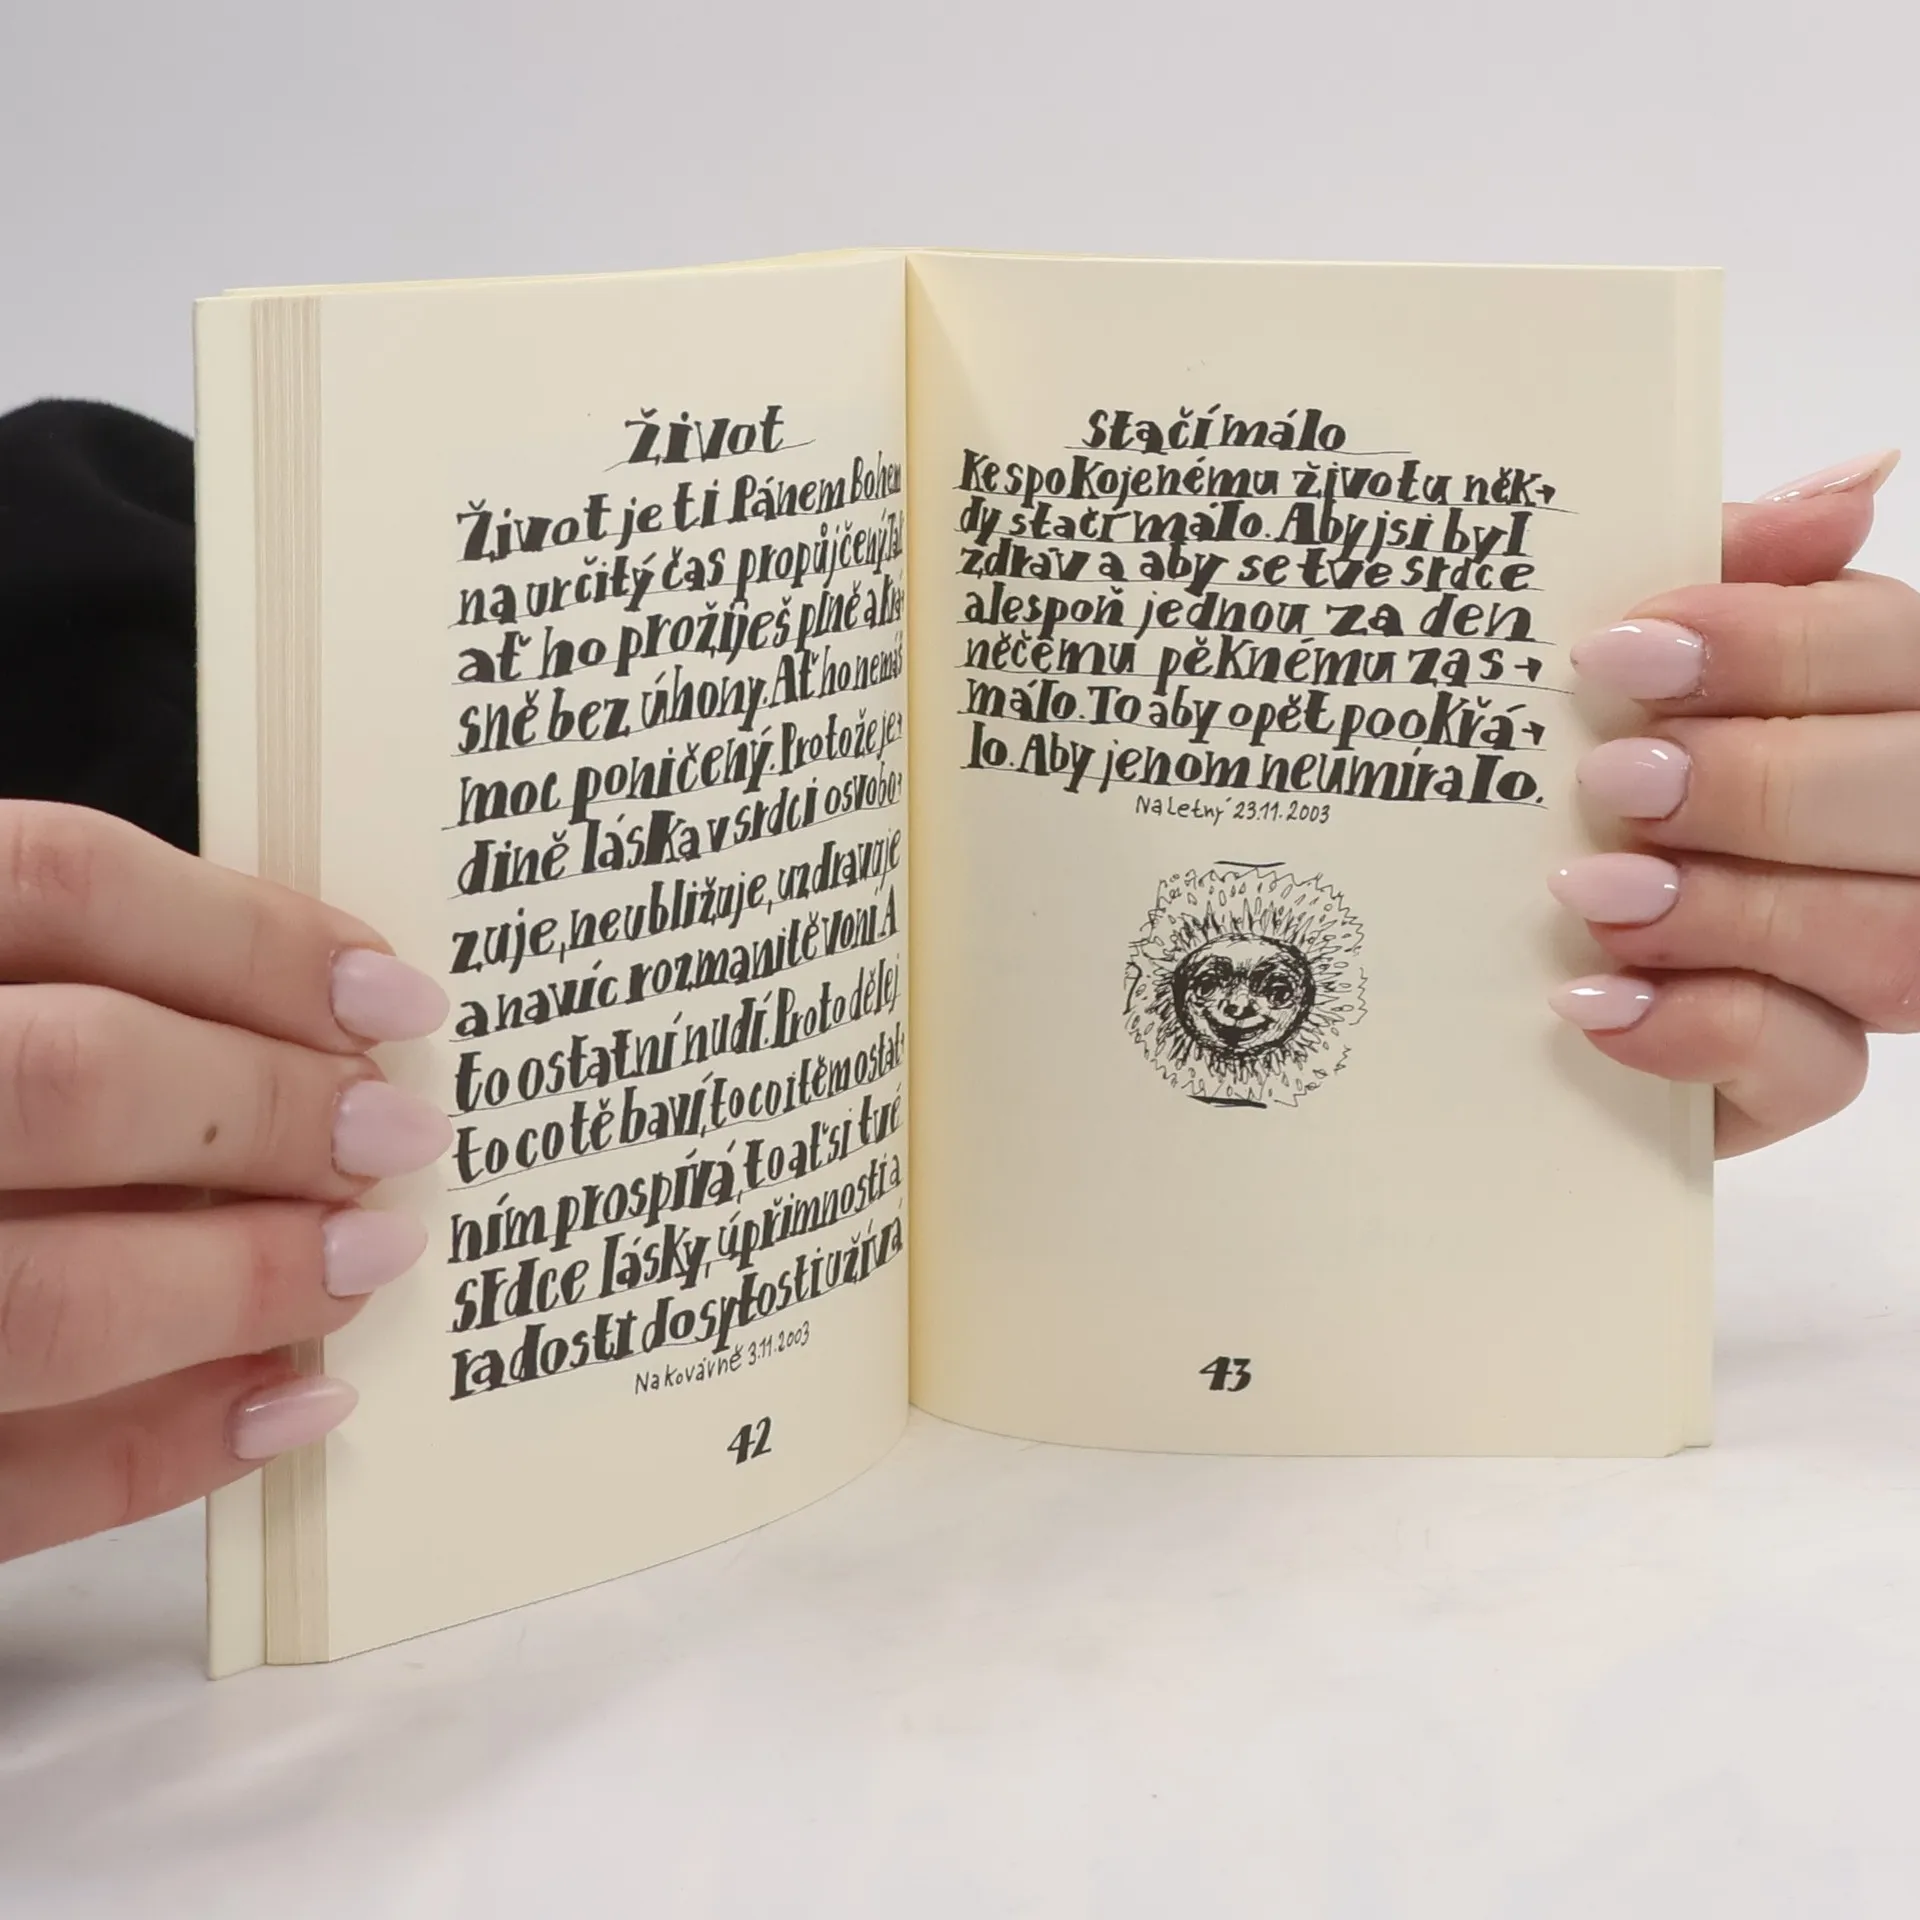 Život
Život je ti Pánem Bohem
na určitý čas propůjčený. Tak
ať ho prožiješ plně a krá→
sně bez úhony. Ať ho nemáš
moc poničený. Protože je→
dině láska v srdci osvobo→
zuje, neubližuje, uzdravuje
a navíc rozmanitě voní A
to ostatní nudí. Proto dělej
to co tě baví, to co i těm ostat→
ním prospívá, to ať si tvé
srdce lásky, úpřimnosti a
radosti dosytosti užívá
Na kovárně 3.11.2003
42
Stačí málo
Ke spokojenému životu něk→
dy stačí málo. Aby jsi byl
zdráv a aby se tvé srdce
alespoň jednou za den
něčemu pěknému zas→
málo. To aby opět pookřá→
lo. Aby jenom neumíralo.
Na Letný 23.11.2003
43